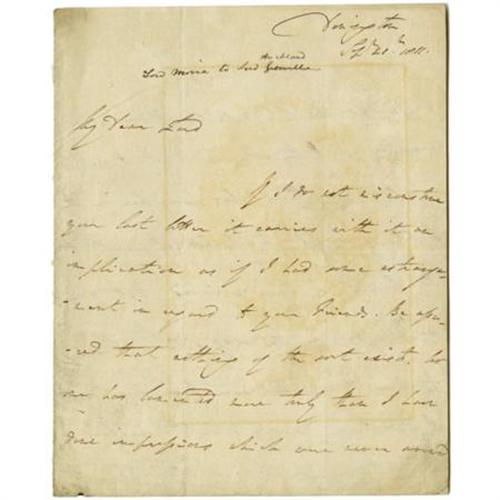 Donington
Sept. 21st 1811.
Auckland
Lord Moira to Lord Grenville
My Dear Lord
If I do not misconstrue
your last letter it carries with it an
implication as if I had some estrange-
-ment in regard to your Friends. Be assu-
-red that nothing of the sort exists. No
one has lamented more truly than I have
done impressions which were never